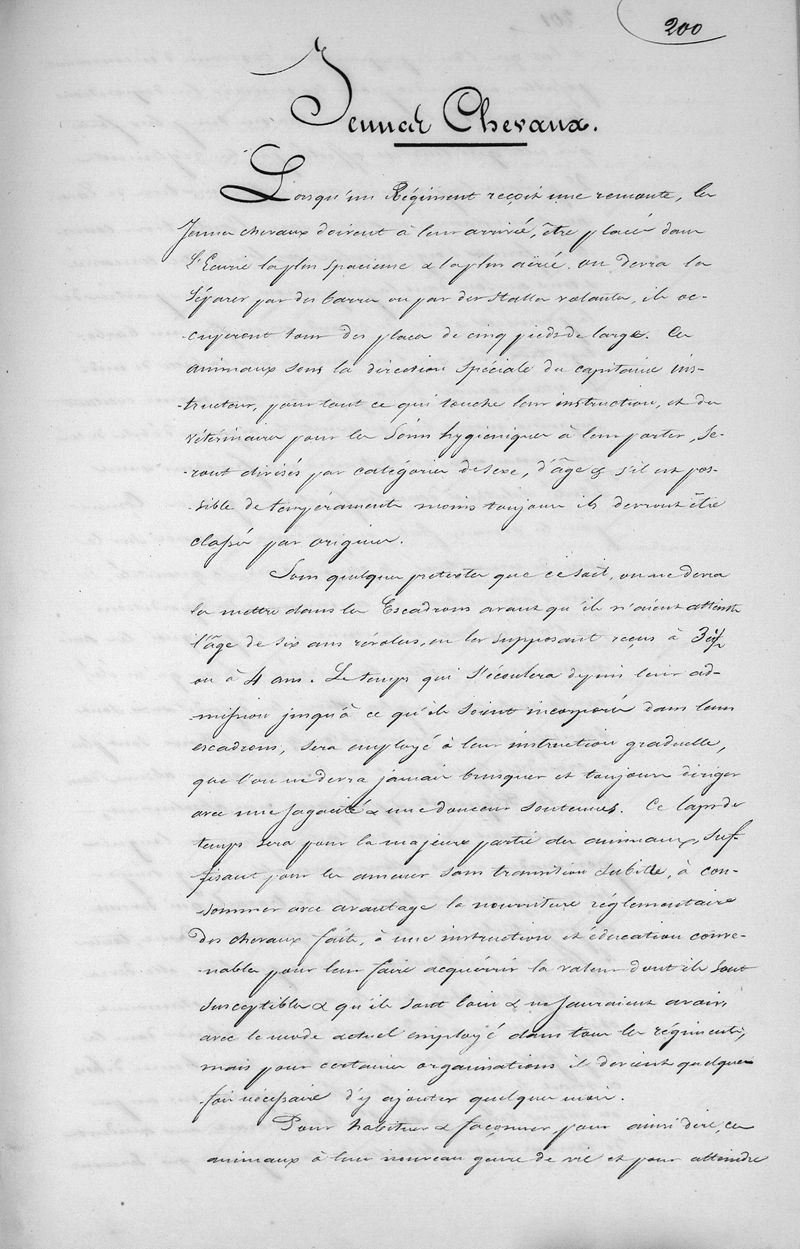 200
Jeunes Chevaux.
Lorsqu'un Régiment reçoit une remonte, les
Jeunes chevaux doivent à leur arrivée, être placés dans
l'Ecurie la plus spacieuse & la plus aërée. on devra les
séparer par des barres ou par des stalles volantes, ils oc-
-cuperont tous des places de cinq pieds de large. Ces
animaux sous la direction spéciale du capitaine ins-
-tructeur, pour tout ce qui touche leur instruction, et du
vétérinaire pour les soins hygieniques à leur porter, se-
-ront divisés par catégories de sexe, d'âge & s'il est pos-
-sible de tempéraments moins toujours ils devront être
classés par origines.
Sous quelque prétexte que ce soit, on ne devra
les mettre dans les Escadrons avant qu'ils n'aient atteint
l'âge de six ans révolus, en les supposant reçus à 3 ½
ou à 4 ans. Le temps qui s'écoulera depuis leur ad-
-mission jusqu'à ce qu'ils soient incorporés dans leurs
escadrons, sera employé à leur instruction graduelle,
que l'on ne devra jamais brusquer et toujours diriger
avec une sagacité & une douceur soutenues. Ce laps de
temps sera pour la majeure partie des animaux, suf-
-fisant pour les amener sans transition subite, à con-
-sommer avec avantage la nourriture réglementaire
des chevaux faits, à une instruction et éducation conve-
-nables pour leur faire acquérir la valeur dont ils sont
susceptibles & qu'ils sont loin & ne sauraient avoir,
avec le mode actuel employé dans tous les régiments,
mais pour certaines organisations il devient quelque
fois nécessaire d'y ajouter quelques mois.
Pour habituer & façonner, pour ainsi dire, ces
animaux à leur nouveau genre de vie et pour atteindre